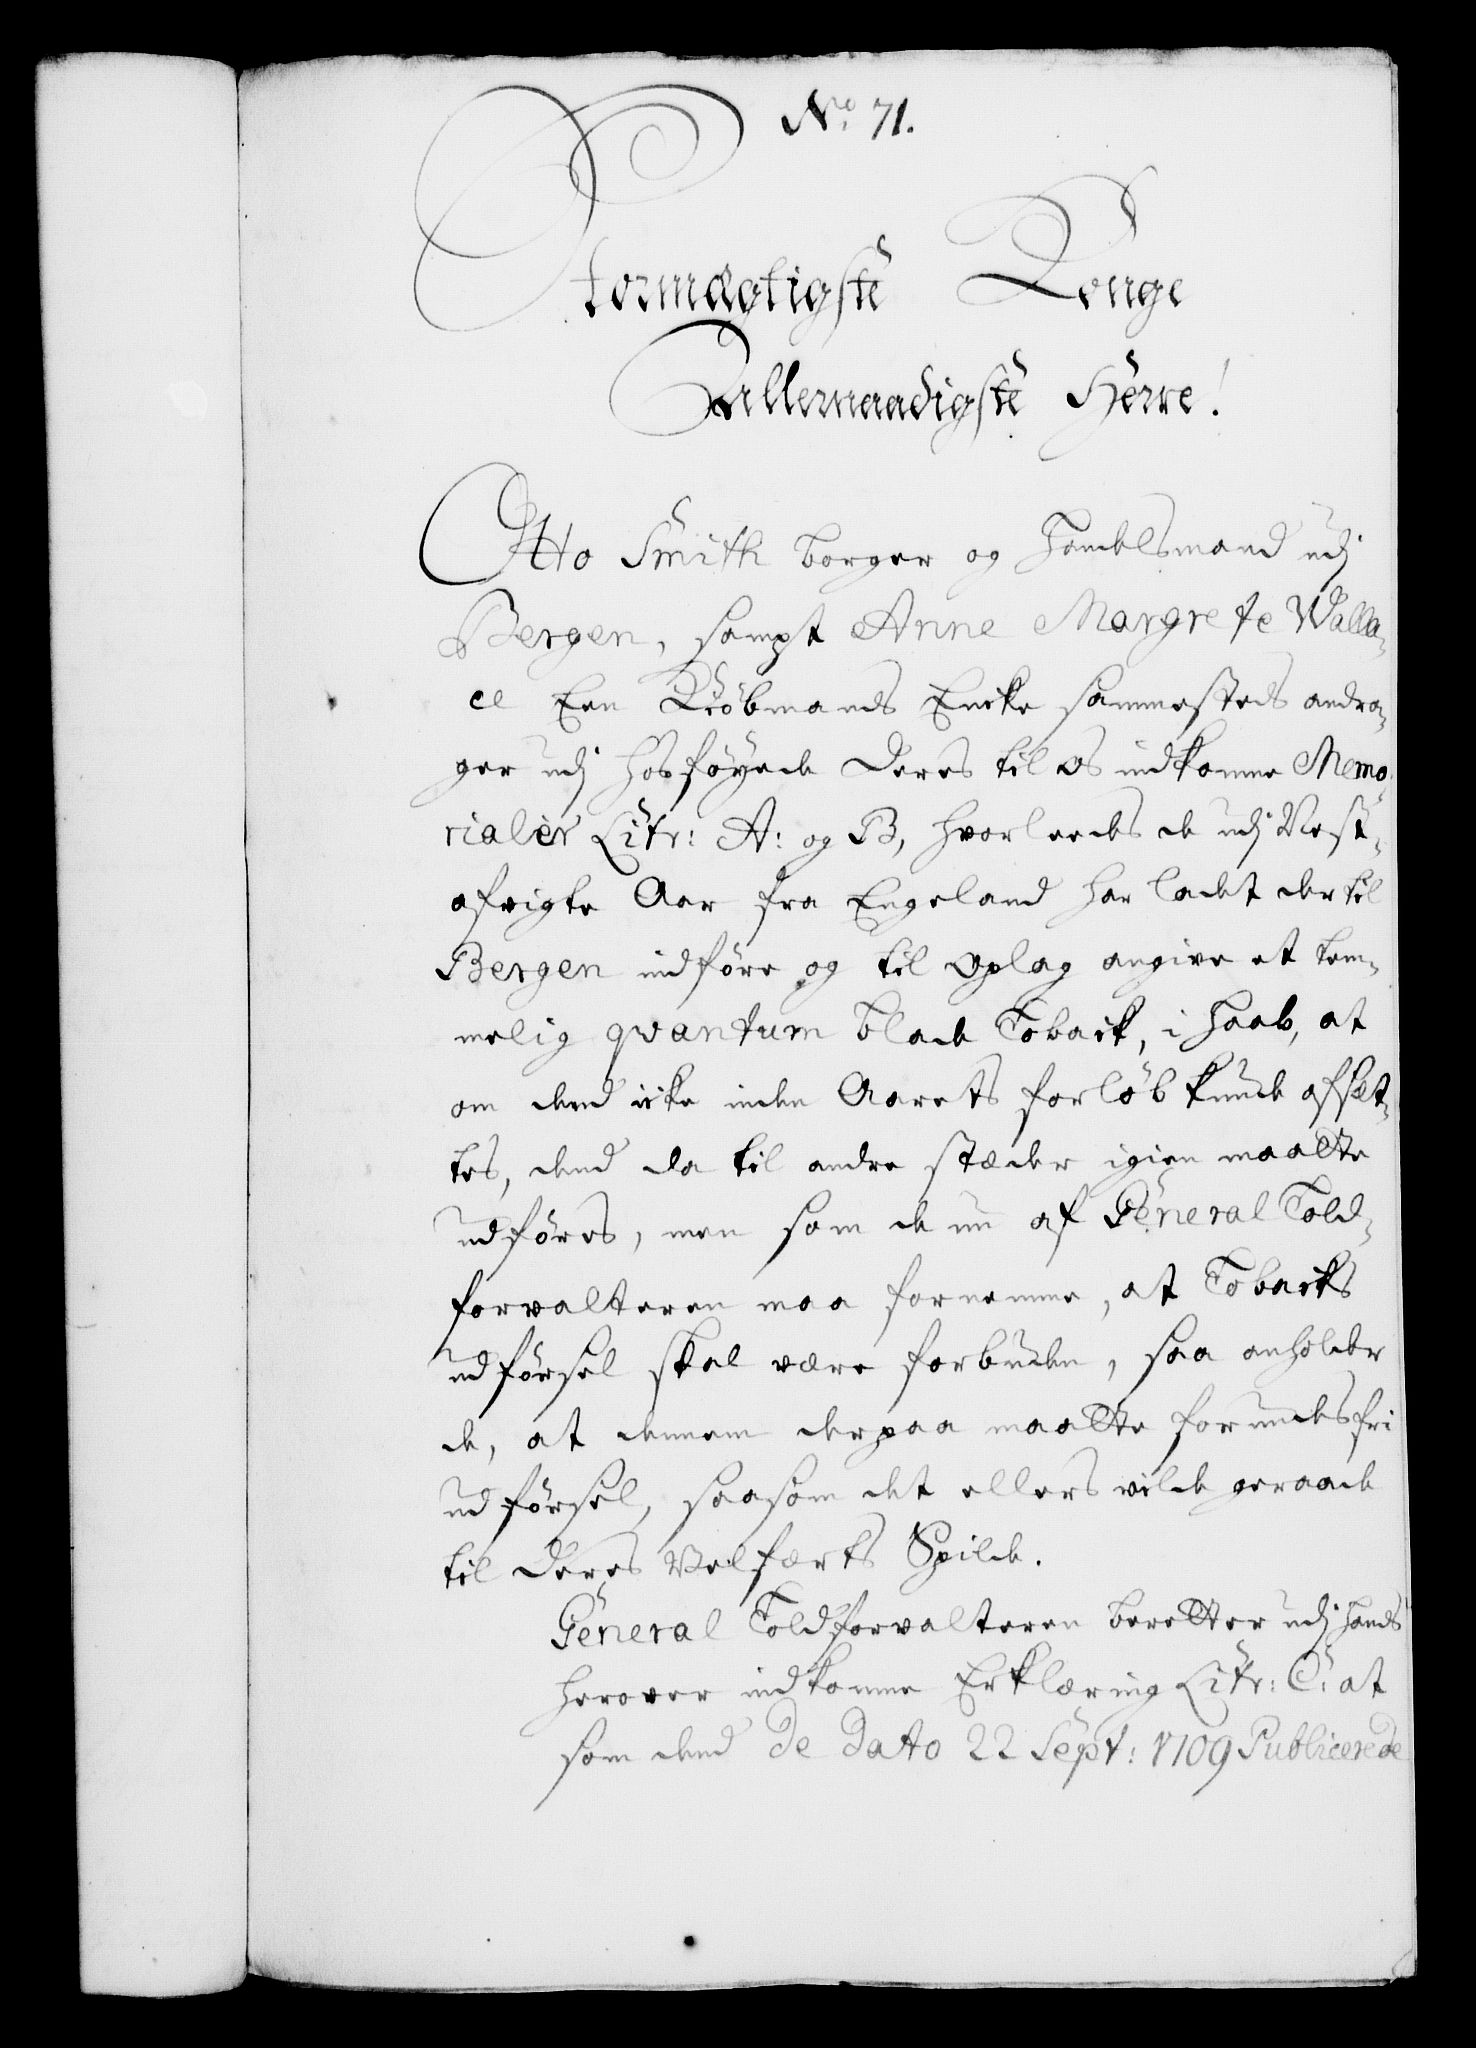 No. 71.
Stormægtigste Konge
Allernaadigste Herre!
Otto Smith borger og Handelsmand udj
Bergen, sampt Anne Margrete Walla-
ce Een Kiøbmands Encke sammesteds andra-
ger udj hosføyede deres til os indkomne Memo-
rialer Litr: A: og B, hvorleedes de udj Nest-
afvigte Aar fra Engeland har ladet der til
Bergen indføre og til Oplag angive et tem-
melig qvantum blade Toback, i haab, at
om dend icke inden Aarets forløb kunde afsæt-
tes, dend da til andre stæder igien maatte
udføres, men som de nu af General Told-
forvalteren maa fornemme, at Tobacks
udførsel skal være forbuden, saa anholder
de, at dennem derpaa maatte forundes fri
udførsel, saasom det ellers vilde geraade
til deres Velfærts Spilde.
General Toldforvalteren beretter udj hands
herover indkomne Erklæring Litr: C: at
som dend de dato 22 Sept: 1709 Publicerede